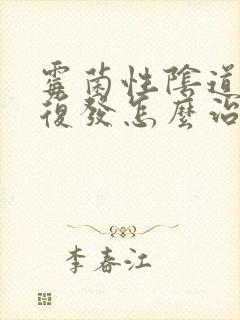 霉菌性陰道
復發怎麼治
李春江